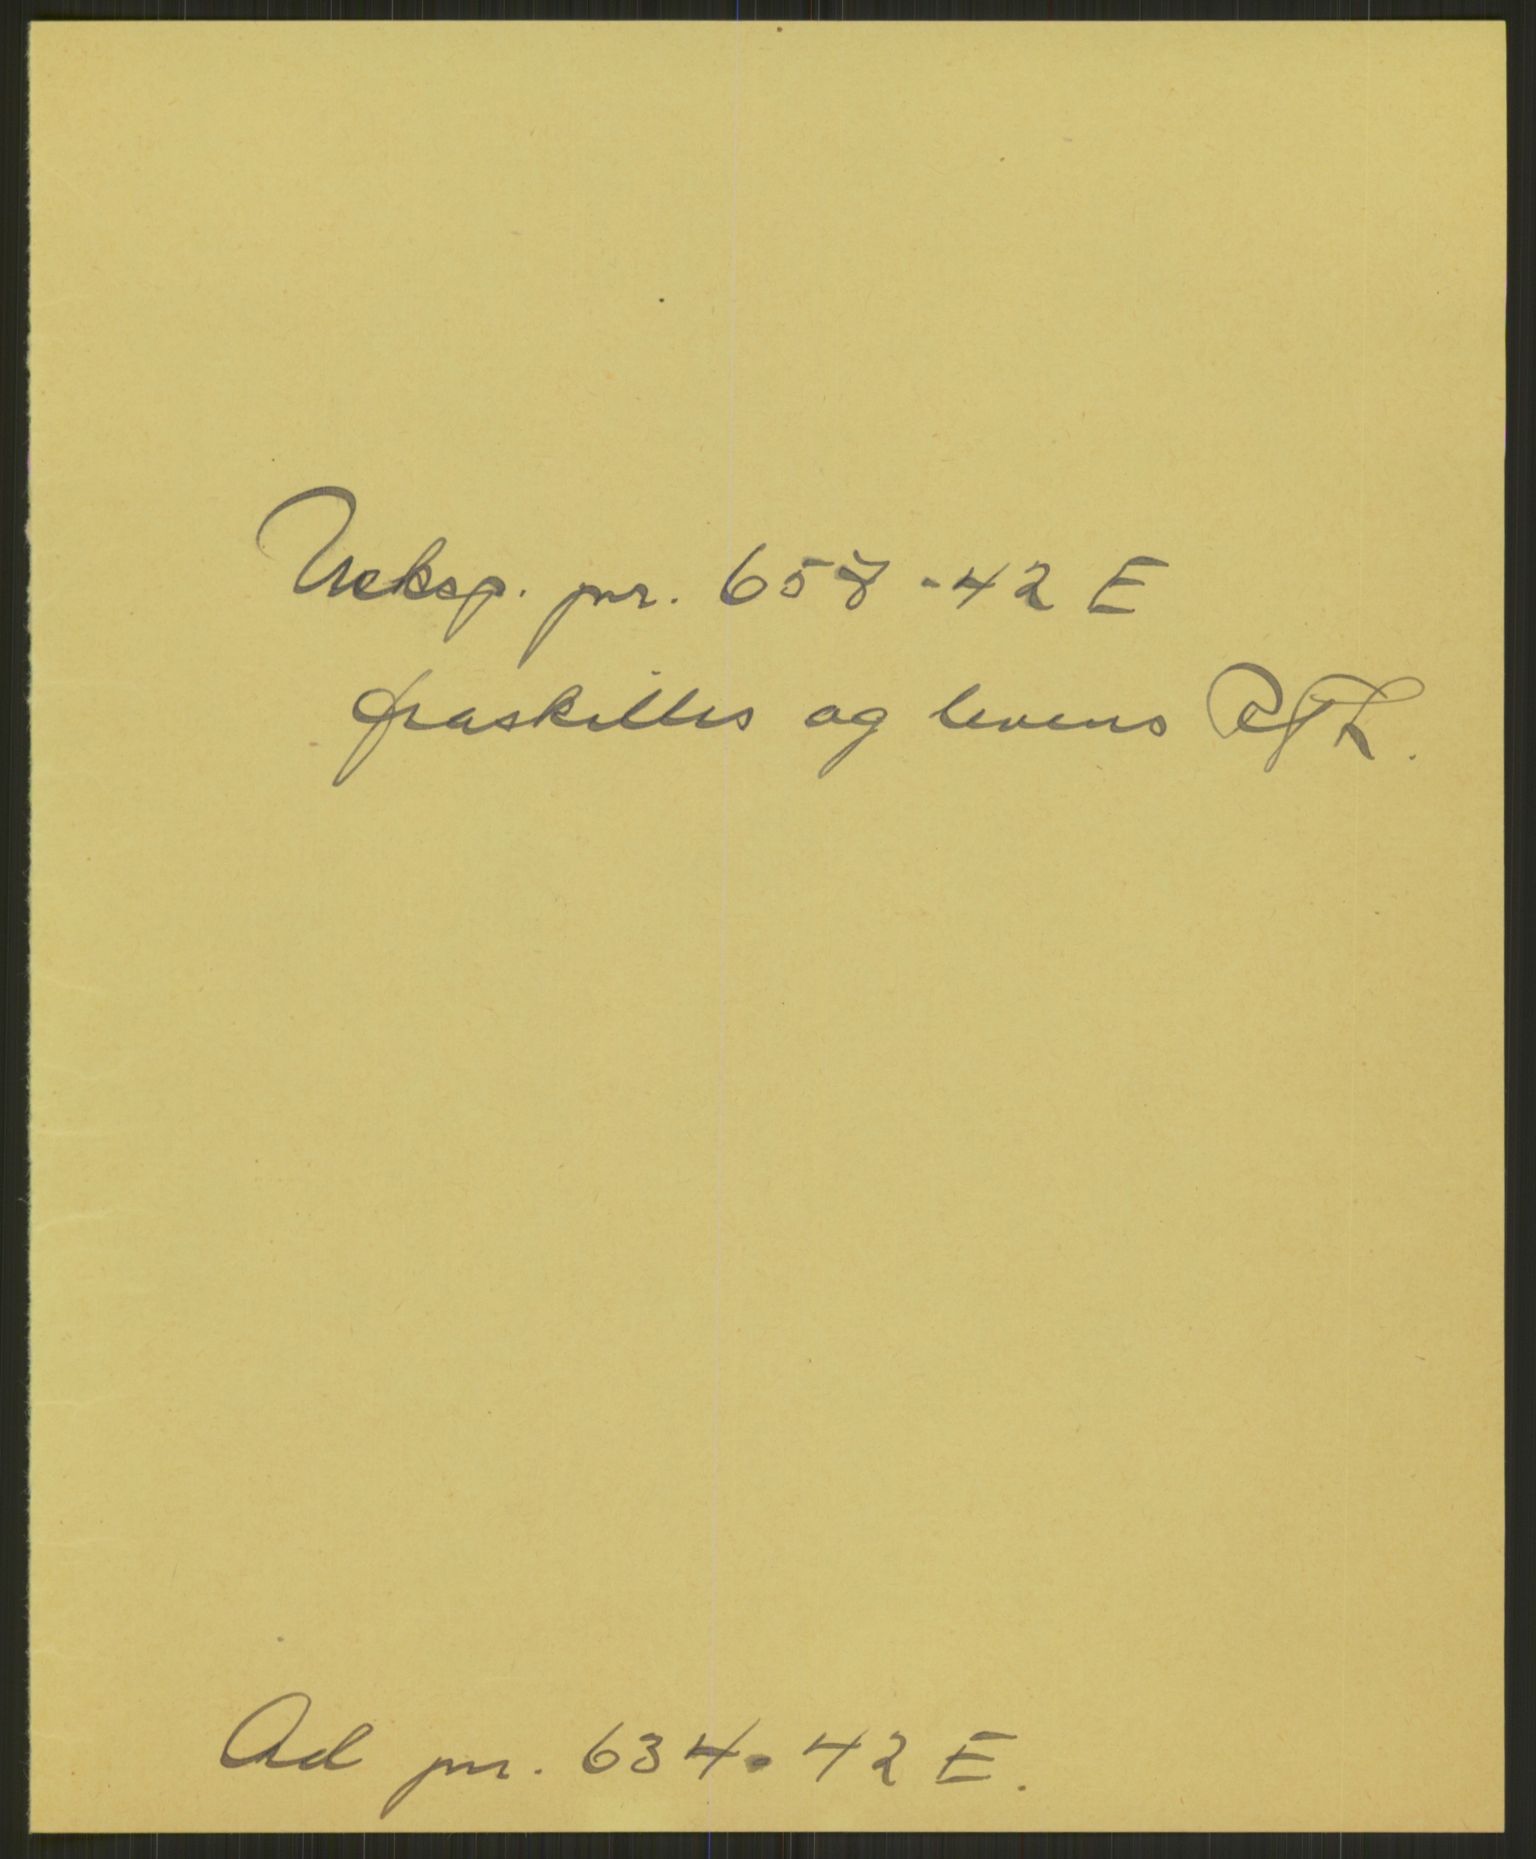 Ueksp. jnr. 657 - 42 E
fraskilles og leveres
Ad jnr. 634 - 42 E.